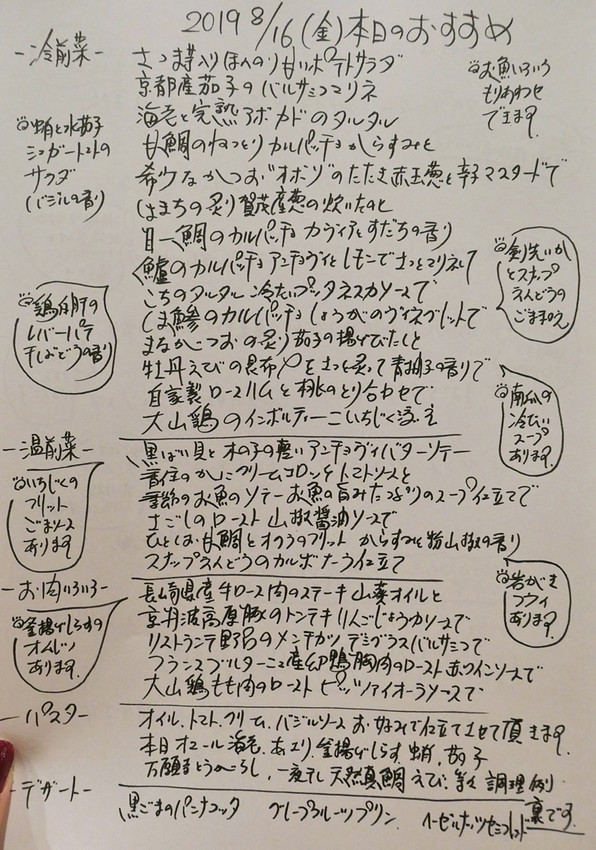 2019 8/16 (金) 本日のおすすめ
-冷前菜-
さつま芋入りほんのり甘いポテトサラダ
京都産茄子のバルサミコマリネ
海老と完熟アボカドのタルタル
甘鯛のねっとりカルパッチョ からすみと
希少なかつお"オボソ"のたたき 赤玉葱と辛子マスタードで
はまちの炙り 賀茂産葱の炊いたのと
目一鯛のカルパッチョ カヴィアとすだちの香り
鱸のカルパッチョ アンチョヴィとレモンでさっとマリネして
こちのタルタル 冷たいプッタネスカソースで
しま鯵のカルパッチョ しょうがのヴィネグレットで
まながつおの炙り 茄子の揚げびたしと
牡丹えびの昆布〆をさっと炙って 青柚子の香りで
自家製ロースハムと桃のとり合わせで
大山鶏のインボルティーニ いちじく添え
お魚いろいろ
もりあわせ
できます
蛸と水茄子
シュガートマトの
サラダ
(バジルの香り)
剣先いか
とスナップ
えんどうの
ごまあえ
鶏白肝の
レバーパテ
干しぶどうの香り
南瓜の
冷たい
スープ
あります
-温前菜-
黒ばい貝と木の子の軽いアンチョヴィバターソテー
香住のかにクリームコロッケ トマトソースと
季節のお魚のソテー お魚の旨みたっぷりのスープ仕立てで
さごしのロースト 山椒醤油ソースで
ひとしお甘鯛とオクラのフリット からすみと粉山椒の香り
スナップえんどうのカルボナーラ仕立て
いちじくの
フリット
ごまソース
あります
-お肉いろいろ-
長崎県産牛ロース肉のステーキ 山葵オイルと
京丹波高原豚のトンテキ りんごしょうがソースで
リストランテ野呂のメンチカツ デミグラスバルサミコで
フランスブルターニュ産幼鴨胸肉のロースト 赤ワインソースで
大山鶏もも肉のロースト ピッツァイオーラソースで
岩がき
フライ
あります
釜揚げしらすの
オムレツ
あります
-パスタ-
オイル、トマト、クリーム、バジルソース お好みで仕立てさせて頂きます
本日 オマール海老、あさり、釜揚げしらす、蛸、茄子
万願寺とうがらし、一夜干し天然真鯛 えび、等々 調理例り
裏です
-デザート-
黒ごまのパンナコッタ グレープフルーツプリン ヘーゼルナッツセミフレッド